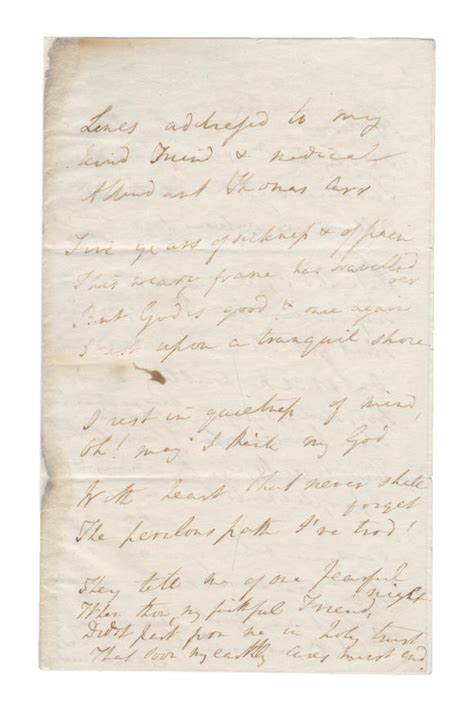 Lines addressed to my
kind Friend & medical
Attendant Thomas Carr

Five years of sickness & of pain
This weary frame has travelled
oer
But God is good & once again
I rest upon a tranquil shore

I rest in quietness of mind,
Oh! may I thank my God
With heart that never shall
forget
The perilous path I've trod!

They tell me of one fearful
night
When thou, my faithful Friend,
Didst part from me in holy trust
That soon my earthly cares must end.